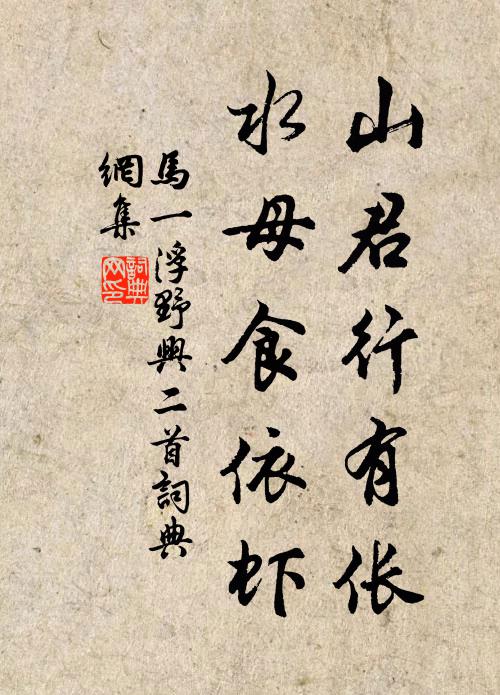 山君行有伥
水母食依虾
馬一浮野興二首詞典
網集
詞典
网印